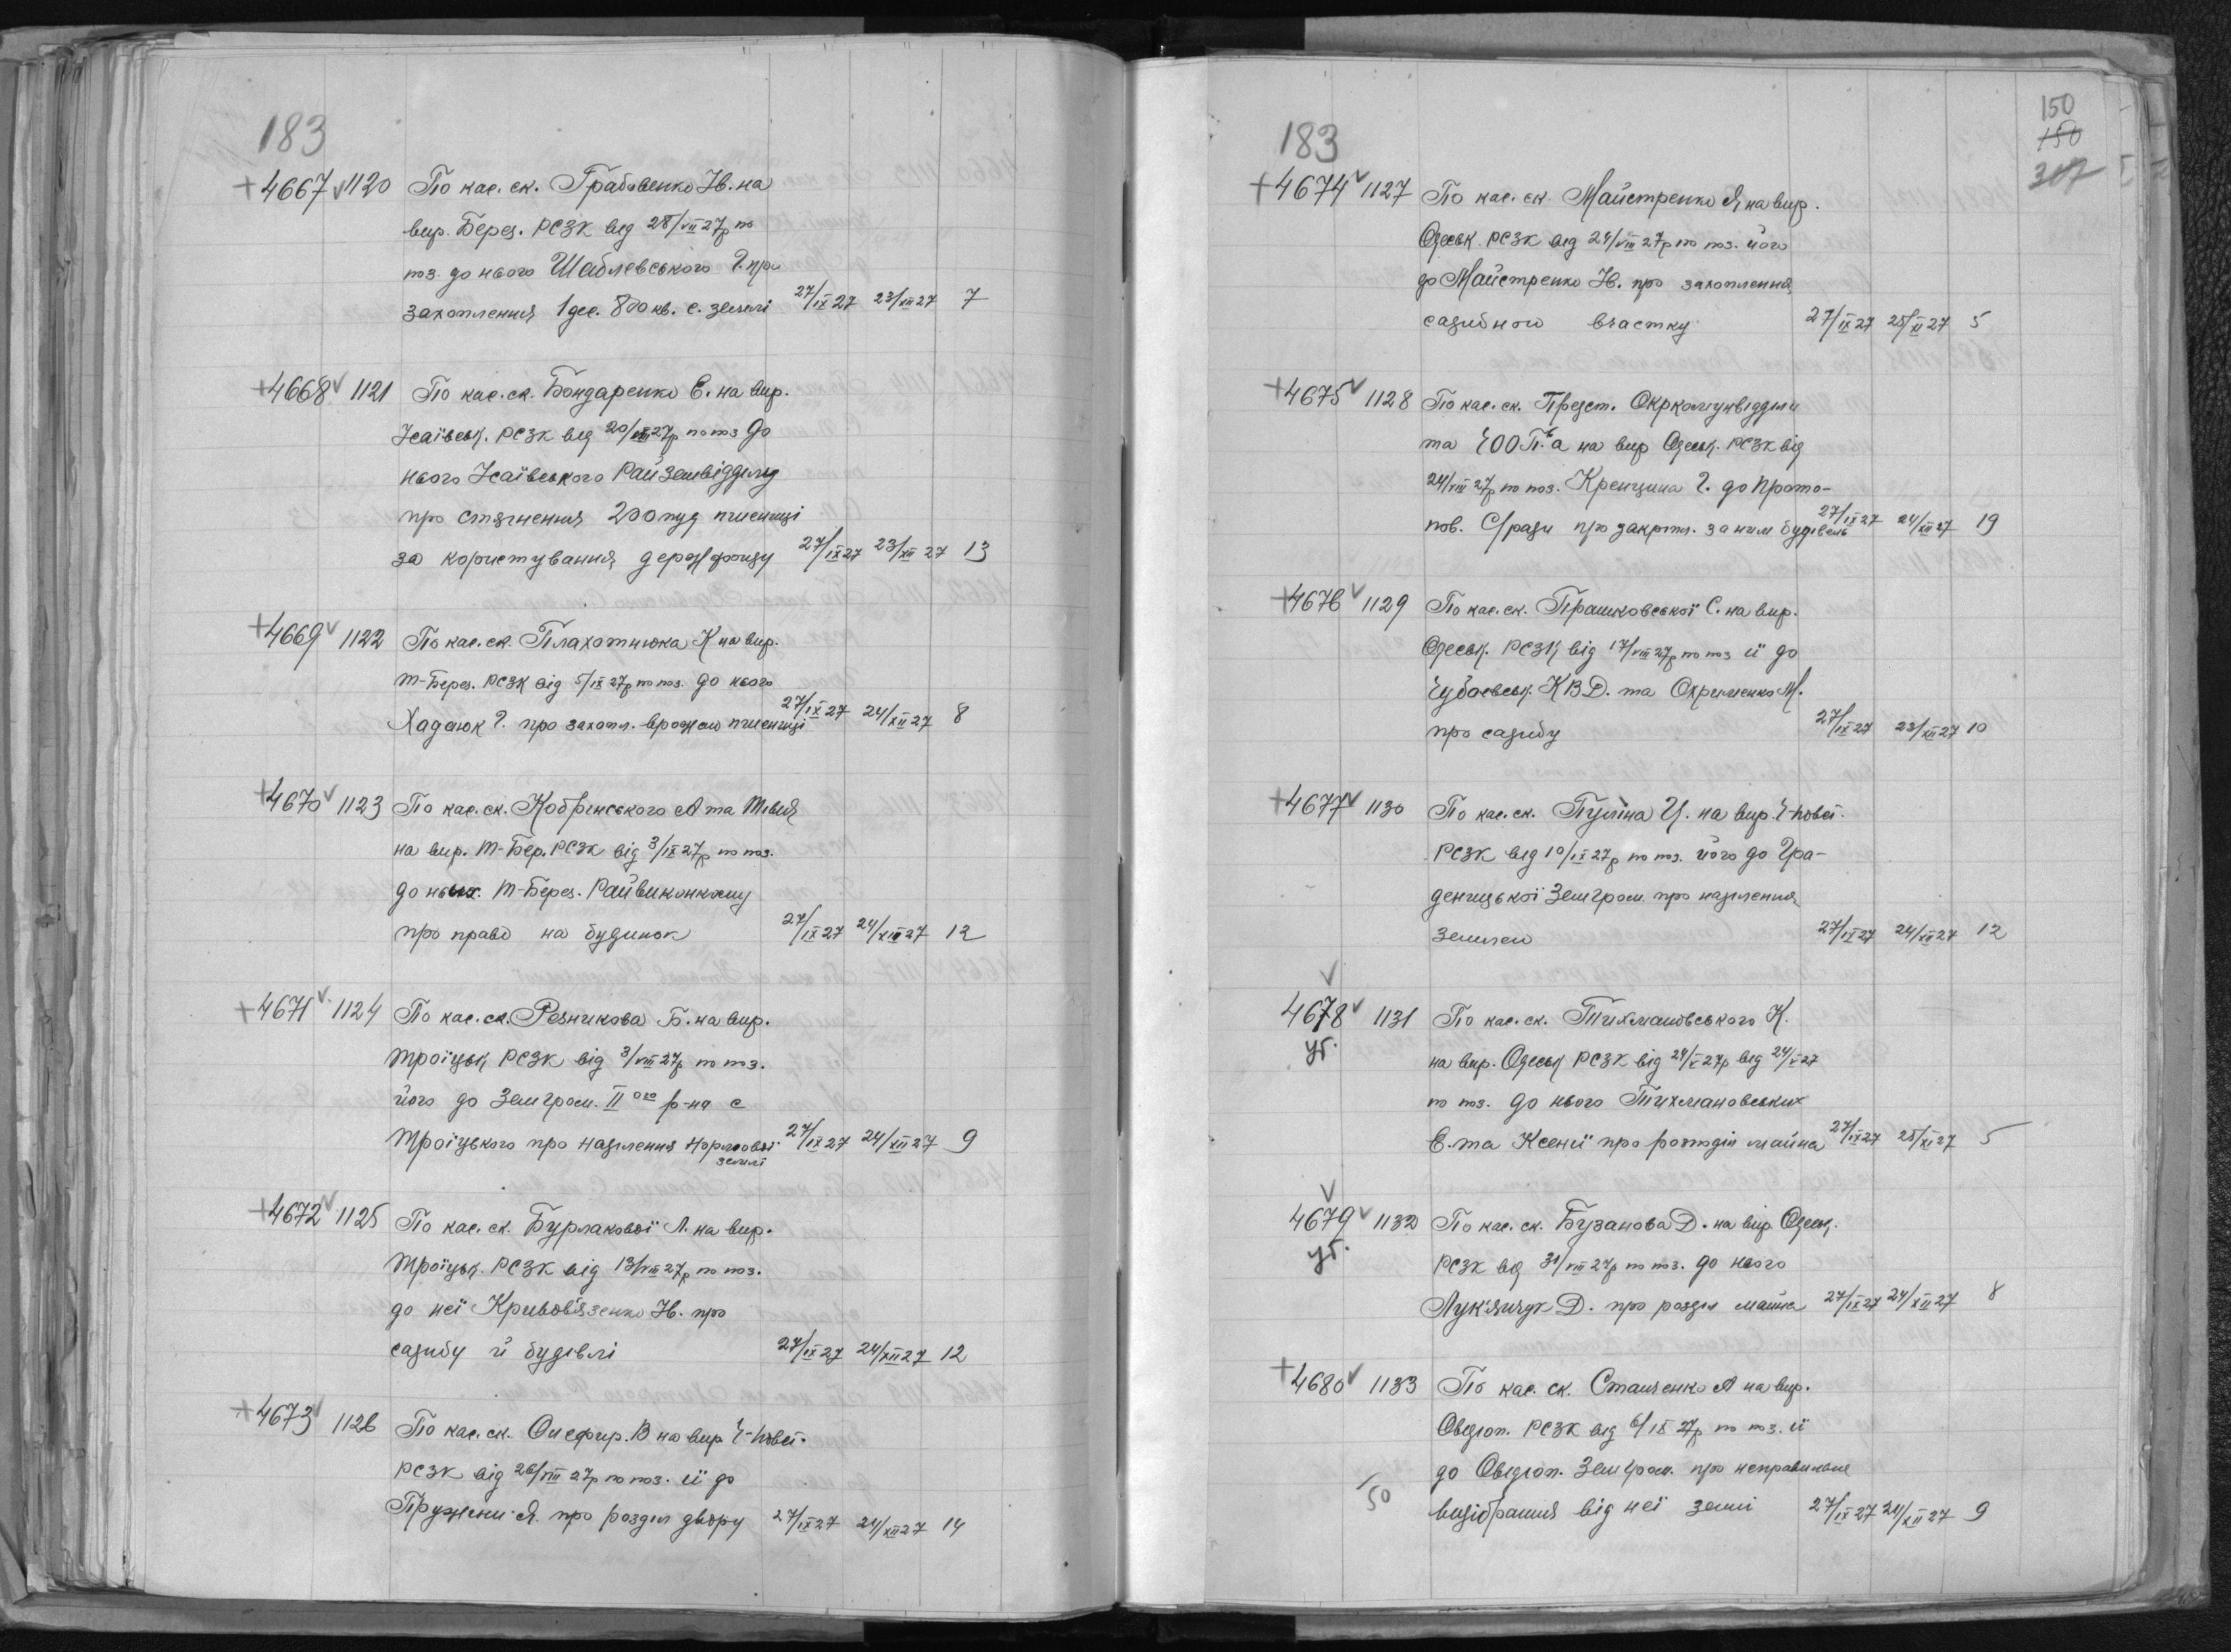 183
+4667 √1120 По кас. ск. Грабовенко Ів. на
вир. Берез. РСЗК від 28/VII 27р по
поз. до нього Шаблевського Г. про
захоплення 1 дес. 800 кв. с. землі 27/IX 27 23/XII 27 7
+4668 √ 1121 По кас. ск. Бондаренко Є. на вир.
Ісаївськ. РСЗК від 20/VIII 27р по поз до
нього Ісаївського Райземвідділу
про стягнення 200 пуд пшениці
за користування держфонду 27/IX 27 23/XII 27 13
+4669 √ 1122 По кас. ск. Плахотнюка К на вир.
Т-Берез. РСЗК від 5/IX 27р по поз. до нього
Хадаюк Г. про захопл. врожаю пшениці 27/IX 27 24/XII 27 8
+4670 √ 1123 По кас. ск. Кобринського А та
на вир. Т-Бер. РСЗК від 3/IX 27р по поз.
до них. Т-Берез. Райвиконкому
про право на будинок 27/IX 27 24/XII 27 12
+4671 √ 1124 По кас. ск. Резникова Б. на вир.
Троїцьк РСЗК від 3/VIII 27р по поз.
його до Земгром. II ого р-на с
Троїцького про наділення нормової землі 27/IX 27 24/XII 27 9
+4672 √ 1125 По кас. ск. Бурлакової Л. на вир.
Троїцьк. РСЗК від 13/VIII 27р по поз.
до неї Кривов'язенко Ів. про
садибу й будівлі 27/IX 27 24/XII 27 12
+4673 √ 1126 По кас. ск. Онефир. В на вир.
РСЗК від 26/VIII 27р по поз. її до
Пружени Я. про розділ двору 27/IX 27 24/XII 27 14
183
150
150
317
+4674 √ 1127 По кас. ск. Майстренко Я на вир.
Одеськ. РСЗК від 24/VIII 27р по поз. його
до Майстренко Ів. про захоплення
садибного вчастку 27/IX 27 25/XI 27 5
+4675 √ 1128 По кас. ск. Предст. Окркомунвідділу
та на вир Одеськ. РСЗК від
24/VIII 27р по поз. Кренцина Г. до Прото-
пов. С/ради про закрпл. за ним будівель 27/IX 27 24/XII 27 19
+4676 √ 1129 По кас. ск. Прашковської С. на вир.
Одеськ. РСЗК від 17/VIII 27р по поз її до
Чубаєвськ. К В Д. та Охрименко М.
про садибу 27/IX 27 23/XII 27 10
+4677 √ 1130 По кас. ск. Пуліна У. на вир.
РСЗК від 10/IX 27р по поз. його до Гра-
деницької Земгром. про наділення
землею 27/IX 27 24/XII 27 12
√
4678 √ 1131 По кас. ск. Тихмановського К.
уг. на вир. Одеськ РСЗК від 24/V 27р від 24/V 27
по поз. до нього Тихмановських
Е. та Ксенії про розподіл майна 27/IX 27 25/XI 27 5
√
4679 √ 1132 По кас. ск. Бузанова Д. на вир. Одеськ.
уг. РСЗК від 31/VIII 27р по поз. до нього
Лук'янчук Д. про розділ майна 27/IX 27 24/XII 27 8
+4680 √ 1133 По кас. ск. Станченко А на вир.
Овідіоп. РСЗК від 6/IX 27р по поз. її
до Овідіоп. Земгром. про неправильне
50 видібрання від неї землі 27/IX 27 24/XII 27 9